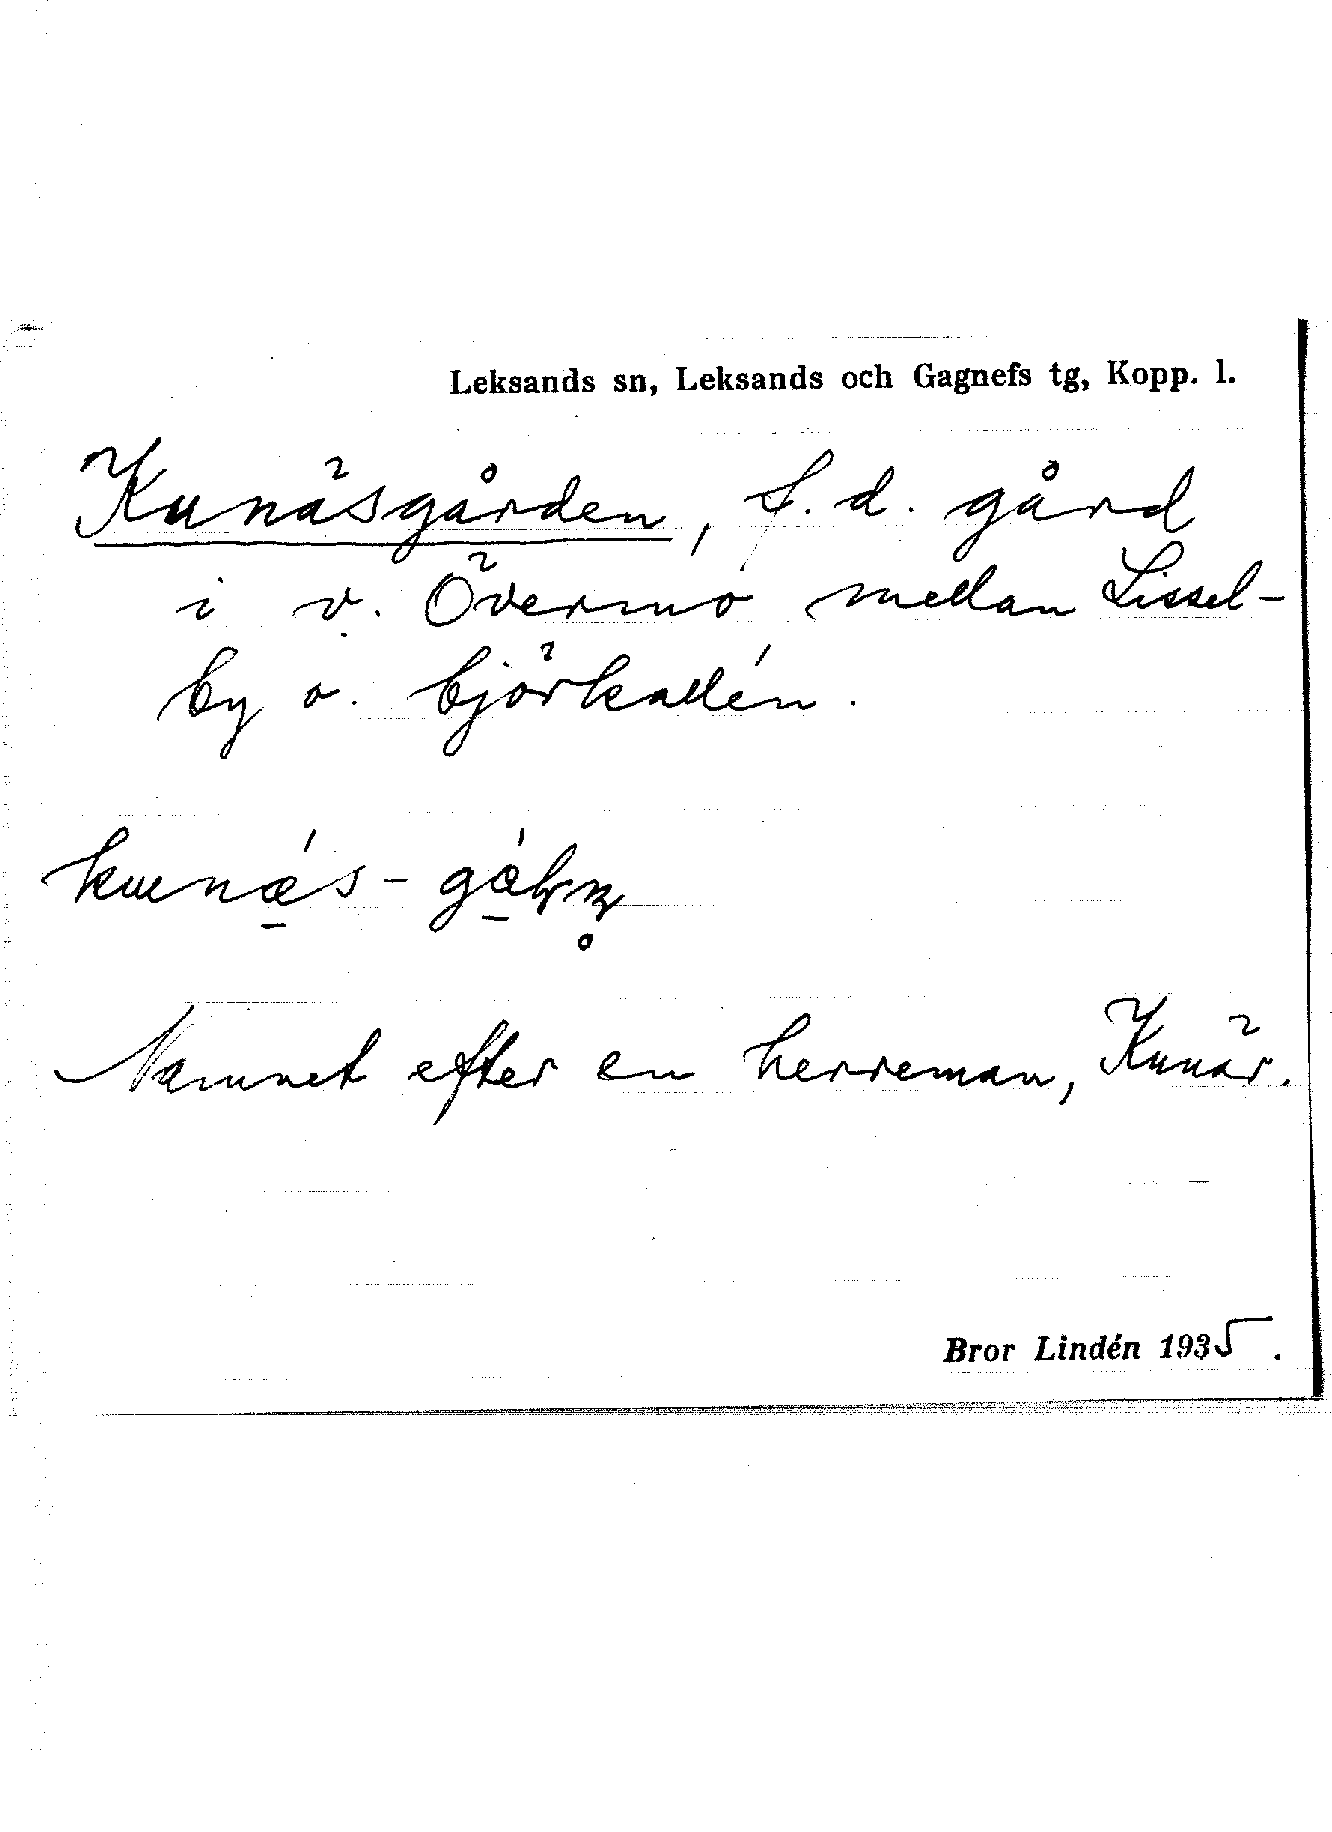 Leksands sn, Leksands och Gagnefs tg, Kopp. l.
Kunäsgården, f. d. gård
i v. Övermo mellan Lissel-
by o. björkallén.
Namnet efter en herreman, Kunär.
Bror Lindén 1935.